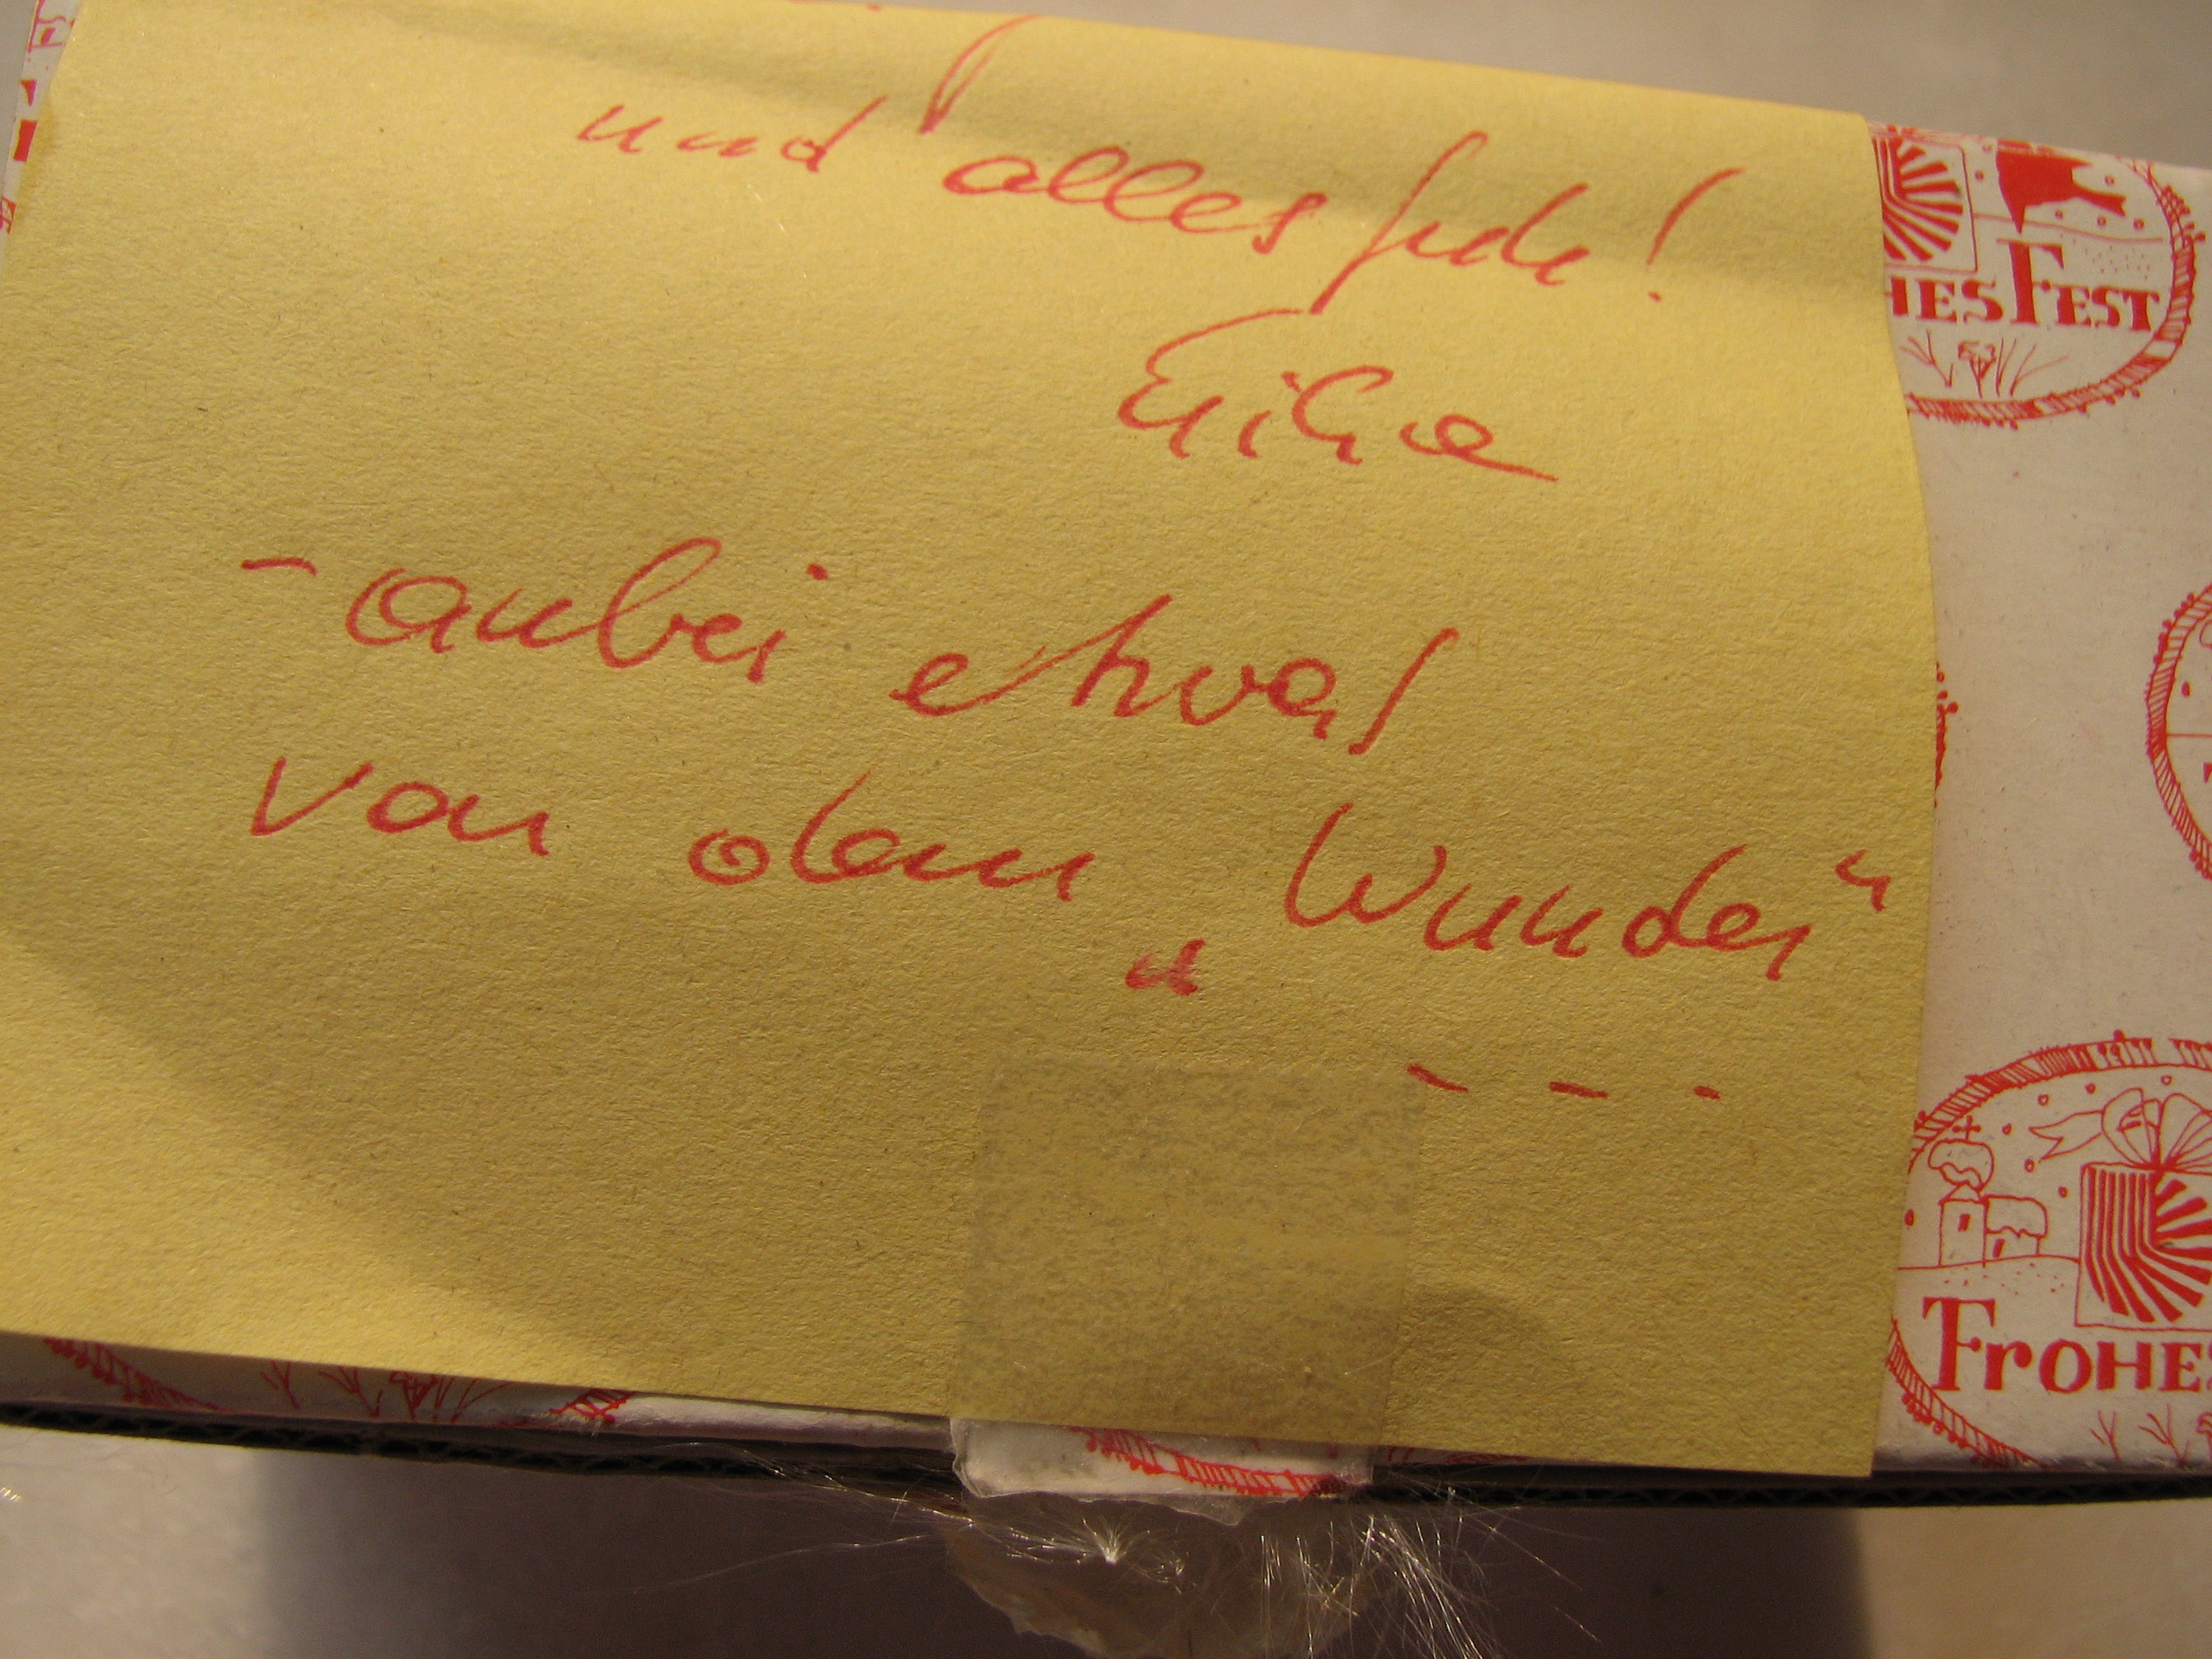 und alles Gute!
- anbei etwas
von dem „Wunder“
- - -
HES FEST
FROHES